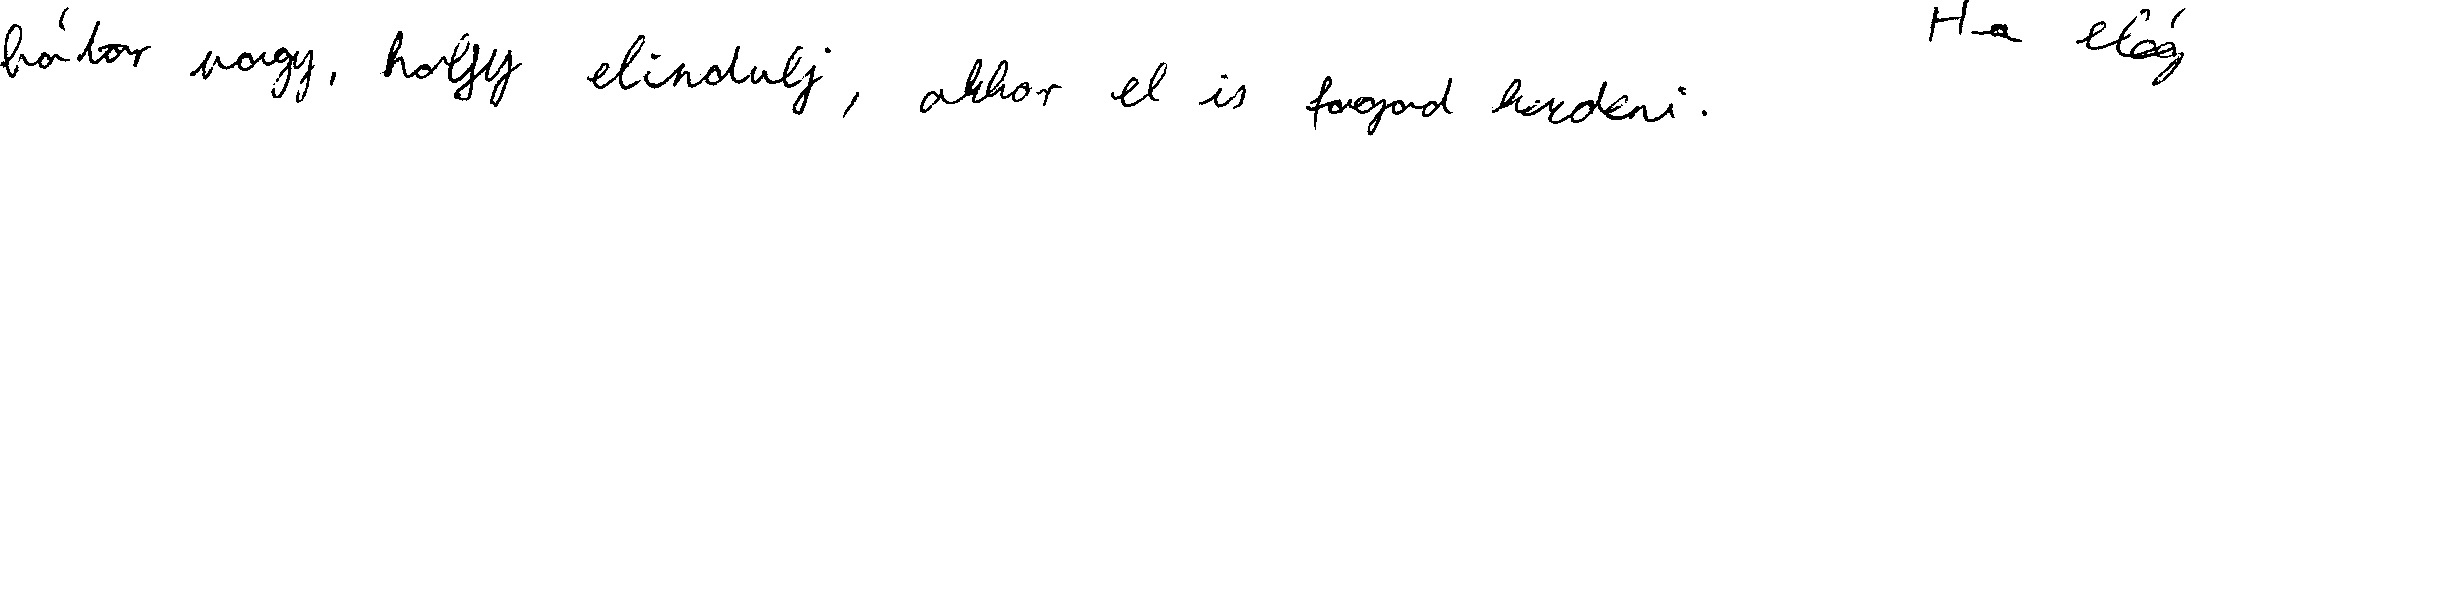 Ha elég
bátor vagy, hogy elindulj, akkor el is fogod kezdeni.